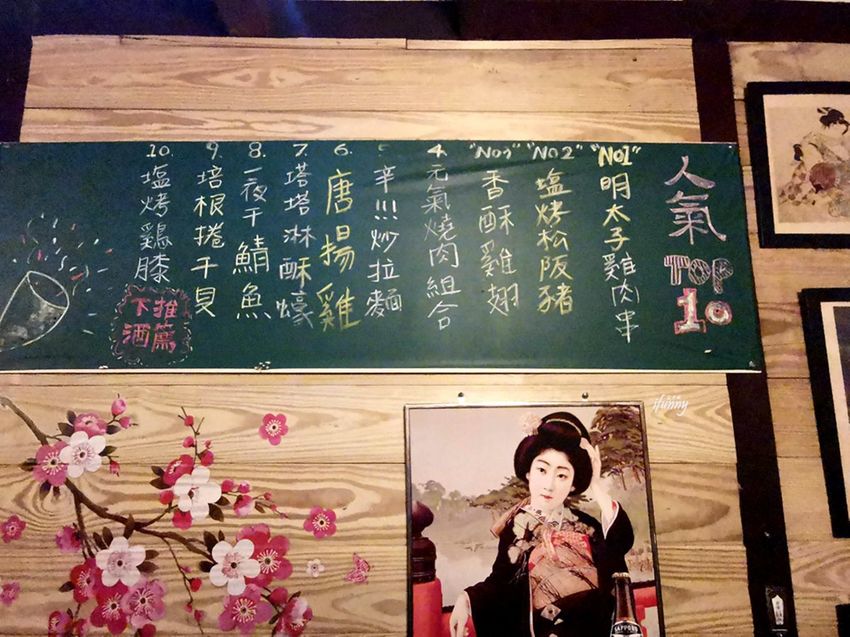 人氣
TOP
10
"No1"明太子雞肉串
"No2"塩烤松阪豬
"No3"香酥雞翅
4.元氣燒肉組合
5辛!!!炒拉麵
6.唐揚雞
7.塔塔淋酥蠔
8.一夜干鯖魚
9.培根捲干貝
10.塩烤鷄膝
推薦
下酒
ifunny
SAPPORO